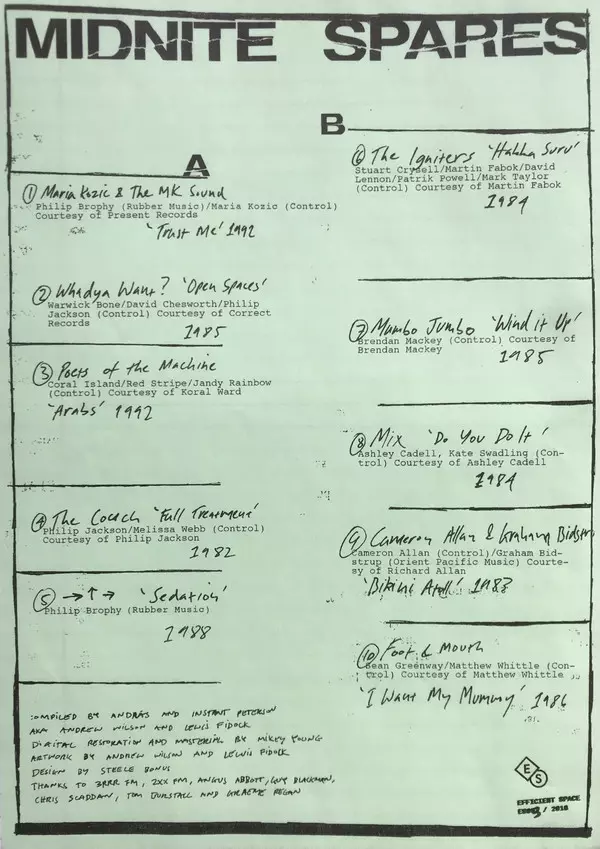 MIDNITE SPARES
A
① Maria Kozic & The MK Sound
Philip Brophy (Rubber Music)/Maria Kozic (Control)
Courtesy of Present Records
'Trust Me' 1992
② Whadya Want? 'Open Spaces'
Warwick Bone/David Chesworth/Philip
Jackson (Control) Courtesy of Correct
Records
1985
③ Poets of the Machine
Coral Island/Red Stripe/Jandy Rainbow
(Control) Courtesy of Koral Ward
'Arabs' 1992
④ The Couch 'Full Treatment'
Philip Jackson/Melissa Webb (Control)
Courtesy of Philip Jackson
1982
⑤ → ↑ → 'Sedation'
Philip Brophy (Rubber Music)
1988
COMPILED BY ANDRÁS AND INSTANT PETERSON
AKA ANDREW WILSON AND LEWIS FIDOCK
DIGITAL RESTORATION AND MASTERING BY MIKEY YOUNG
ARTWORK BY ANDREW WILSON AND LEWIS FIDOCK
DESIGN BY STEELE BONUS
THANKS TO 3RRR FM, 2XX FM, ANGUS ABBOTT, GUY BLACKMAN,
CHRIS SCADDAN, TOM DUNSTALL AND GRAEME REGAN
B
⑥ The Igniters 'Hakka Suru'
Stuart Crysell/Martin Fabok/David
Lennon/Patrik Powell/Mark Taylor
(Control) Courtesy of Martin Fabok
1984
⑦ Mumbo Jumbo 'Wind it Up'
Brendan Mackey (Control) Courtesy of
Brendan Mackey
1985
⑧ Mix 'Do You Do It'
Ashley Cadell, Kate Swadling (Con-
trol) Courtesy of Ashley Cadell
1984
⑨ Cameron Allan & Graham Bidstrup
Cameron Allan (Control)/Graham Bid-
strup (Orient Pacific Music) Courte-
sy of Richard Allan
'Bikini Atoll' 1983
⑩ Foot & Mouth
Sean Greenway/Matthew Whittle (Con-
trol) Courtesy of Matthew Whittle
'I Want My Mummy' 1986
E S
EFFICIENT SPACE
/ 2018